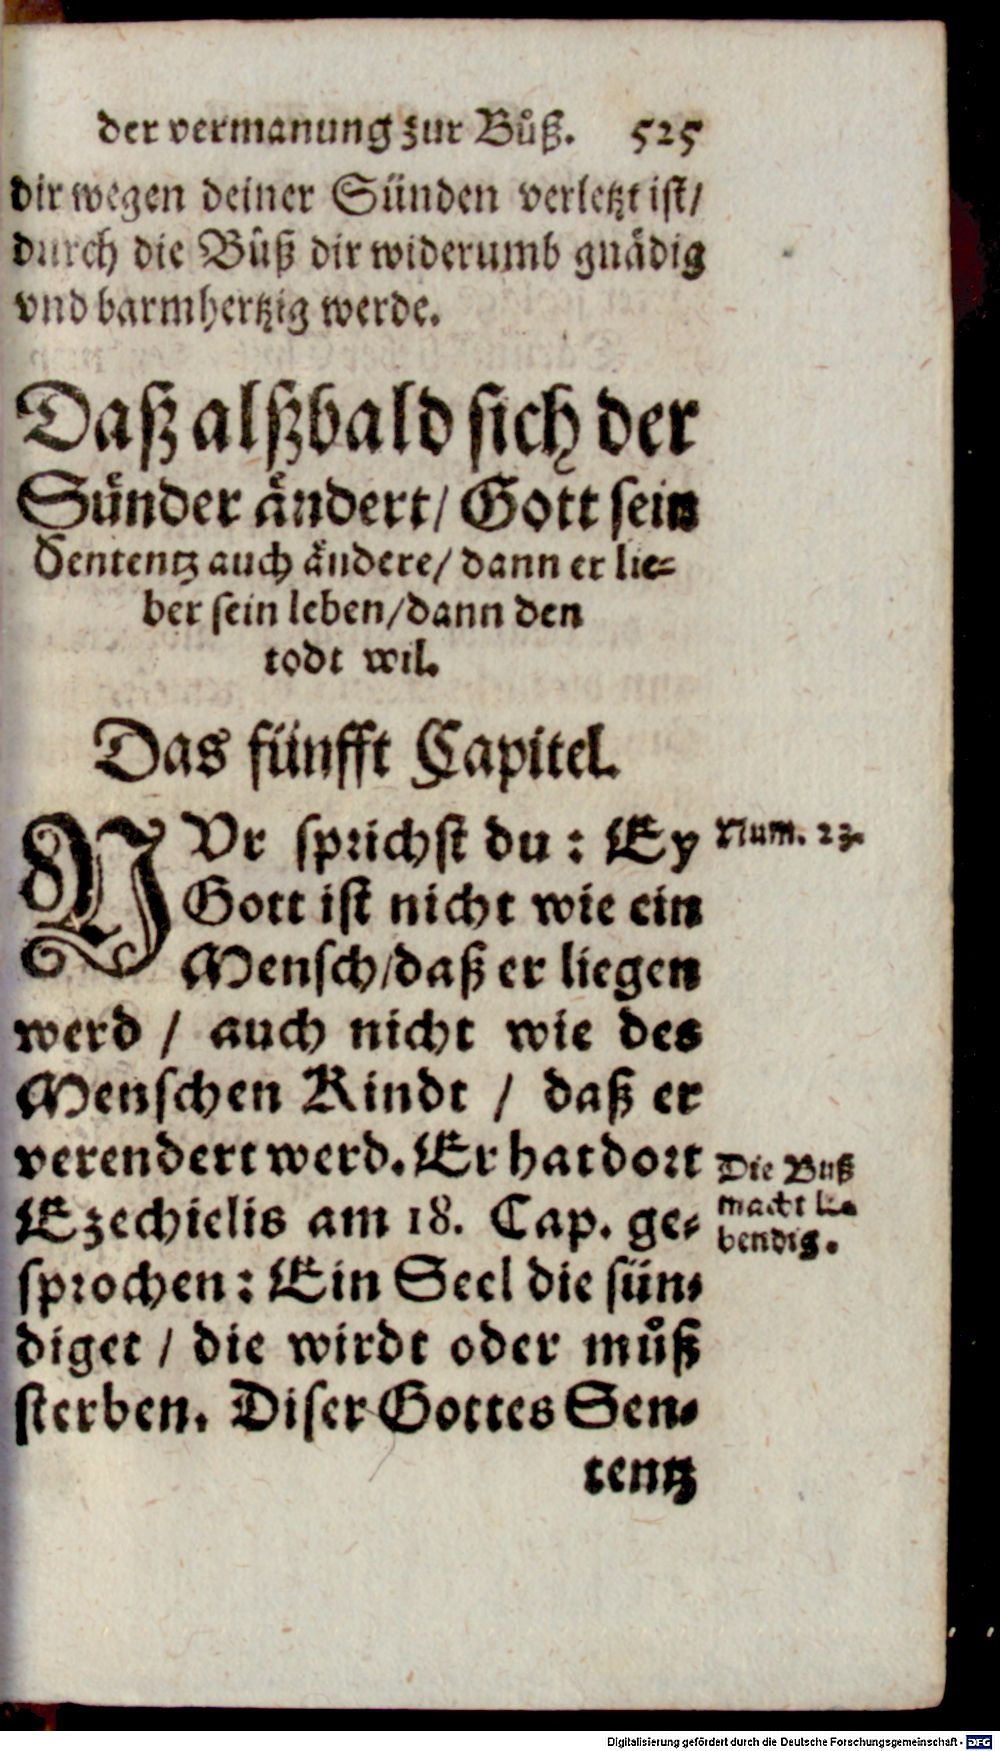 der vermanung zur Bůß. 525
dir wegen deiner Sünden verletzt ist/
durch die Bůß dir widerumb gnädig
vnd barmhertzig werde.
Daß alßbald sich der
Sünder ändert/ Gott sein
Sententz auch ändere/ dann er lie-
ber sein leben/dann den
todt wil.
Das fünfft Capitel.
NVr sprichst du: Ey
Gott ist nicht wie ein
Mensch/daß er liegen
werd / auch nicht wie des
Menschen Kindt / daß er
verendert werd. Er hat dort
Ezechielis am 18. Cap. ge-
sprochen: Ein Seel die sün-
diget / die wirdt oder můß
sterben. Diser Gottes Sen-
tentz
Num. 23.
Die Buß
macht le-
bendig.
Digitalisierung gefördert durch die Deutsche Forschungsgemeinschaft - DFG